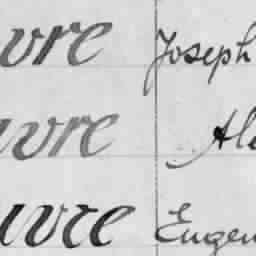 uvre Joseph
uvre Ale
uvre Eugen